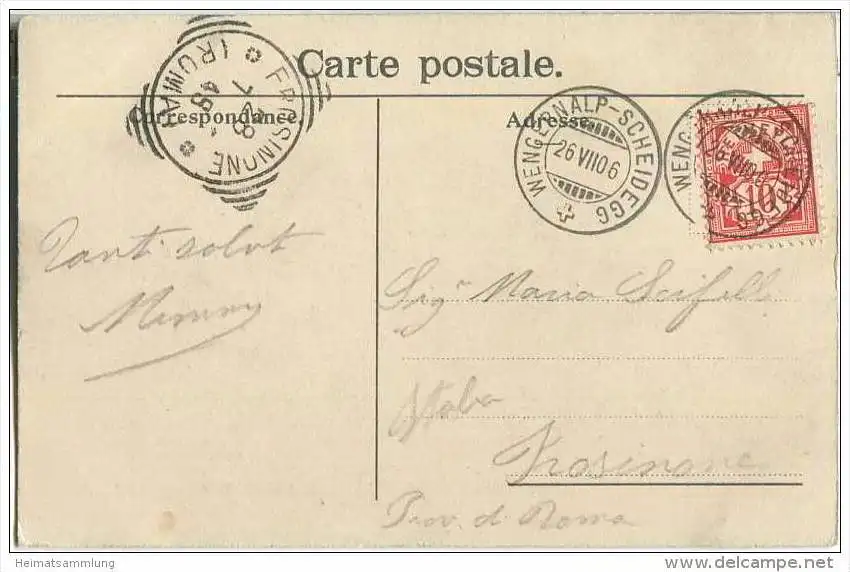 Carte postale.
Correspondance.
Adresse.
FROSINONE
(ROMA)
WENGERNALP-SCHEIDEGG
26 VII 06
WENGERNALP-SCHEIDEGG
10
Tanti saluti
Mimmy
Sigra Maria Scifelli
Italia
Frosinone
Prov. di Roma
Heimatsammlung
www.delcampe.net